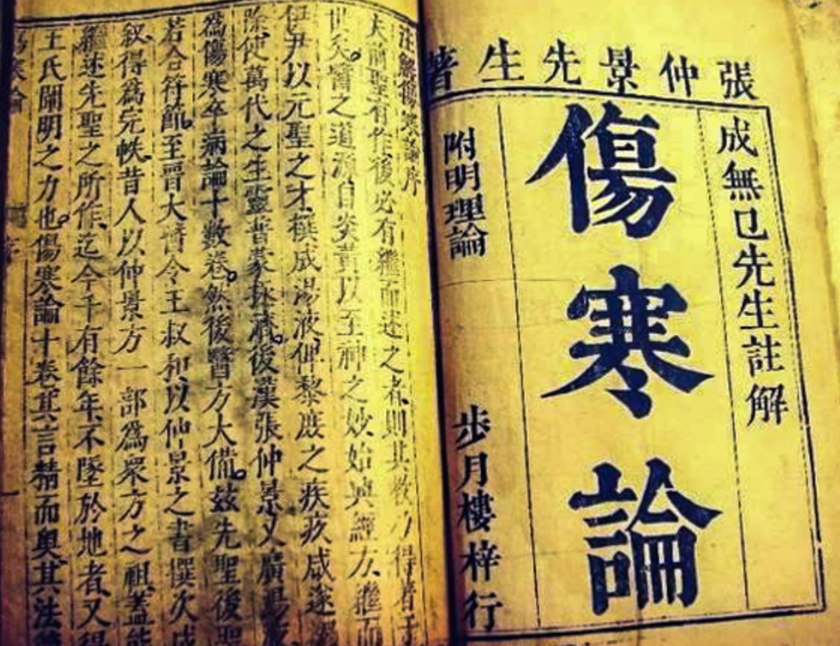 張仲景先生著
成無已先生註解
傷寒論
附明理論
步月樓梓行
注解傷寒論序
夫前聖有作後必有繼而述之者則其教乃得著于
世矣。醫之道源自炎黃以至神之妙始興經方繼而
伊尹以元聖之才撰成湯液俾黎庶之疾疚咸遂蠲
除使萬代之生靈普蒙拯濟。後漢張仲景又廣湯液
爲傷寒卒病論十數卷。然後醫方大備。茲先聖後聖
若合符節。至晉大醫令王叔和以仲景之書撰次成
叙得爲完帙。昔人以仲景方一部爲衆方之祖。蓋能
繼述先聖之所作。迄今千有餘年不墜於地者又得
王氏闡明之力也。傷寒論十卷其言精而奧其法簡
傷寒論